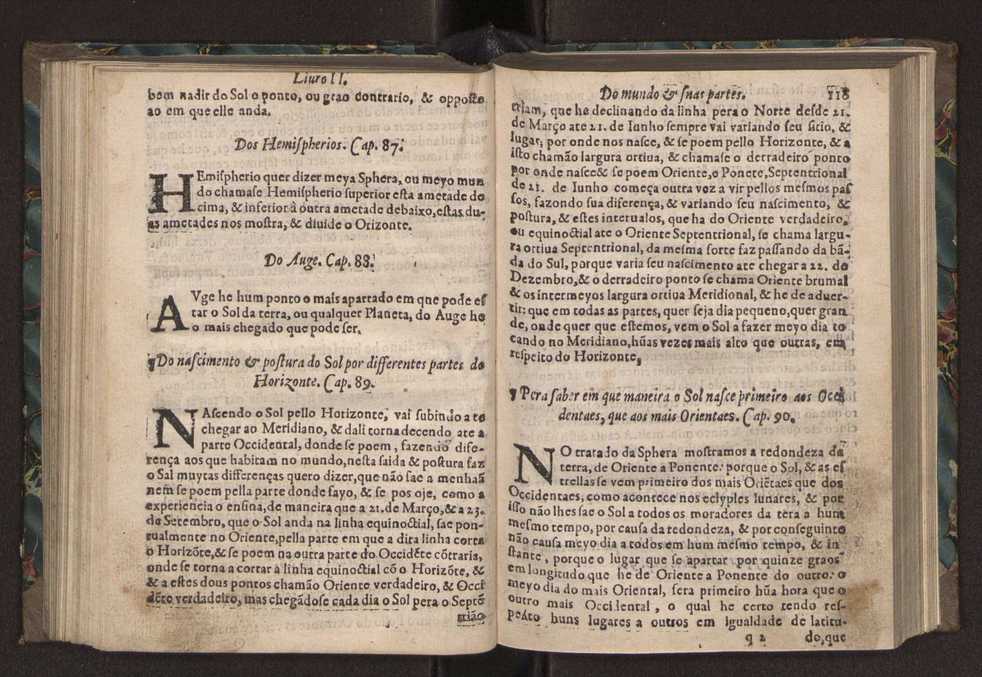 Liuro II.
bem nadir do Sol o ponto, ou grao contrario, & opposto
ao em que elle anda.
Dos Hemispherios. Cap. 87.
HEmispherio quer dizer meya Sphera, ou meyo mun
do chamase Hemispherio superior esta ametade do
cima, & inferior à outra ametade debaixo, estas du-
as ametades nos mostra, & diuide o Orizonte.
Do Auge. Cap. 88.
AVge he hum ponto o mais apartado em que pode es
tar o Sol da terra, ou qualquer Planeta, do Auge he
o mais chegado que pode ser.
¶Do nascimento & postura do Sol por differentes partes do
Horizonte. Cap. 89.
NAscendo o Sol pello Horizonte, vai subindo ate
chegar ao Meridiano, & dali torna decendo ate a
parte Occidental, donde se poem, fazendo dife-
rença aos que habitam no mundo, nesta saida & postura faz
o Sal muytas differenças quero dizer, que não sae a menhaã
nem se poem pella parte donde sayo, & se pos oje, como a
experiencia o ensina, de maneira que a 21. de Março, & a 23.
de Setembro, que o Sol anda na linha equinoctial, sae pon-
tualmente no Oriente, pella parte em que a dita linha corta
o Horizõte, & se poem na outra parte do Occidẽte cõtraria,
onde se torna a cortar a linha equinoctial cõ o Horizõte, &
& a estes dous pontos chamão Oriente verdadeiro, & Occi
dẽte verdadeiro, mas chegãdose cada dia o Sol pera o Septẽ
trião
Do mundo & suas partes. 118
triam, que he declinando da linha pera o Norte desde 21.
de Março ate 21. de Iunho sempre vai variando seu sitio, &
lugar, por onde nos nasce, & se poem pello Horizonte, & a
isto chamão largura ortiua, & chamase o derradeiro ponto
por onde nasce & se poem Oriente, o Ponete, Septentrional
de 21. de Iunho começa outra vez a vir pellos mesmos pas
sos, fazondo sua diferença, & variando seu nascimento, &
postura, & estes interualos, que ha do Oriente verdadeiro,
ou equinoctial ate o Oriente Septentrional, se chama largu-
ra ortiua Septentrional, da mesma sorte faz passando da bã-
da do Sul, porque varia seu nascimento ate chegar a 22. de
Dezembro, & o derradeiro ponto se chama Oriente brumal
& os intermeyos largura ortiua Meridional, & he de aduer-
tir: que em todas as partes, quer seja dia pequeno, quer gran
de, onde quer que estemos, vem o Sol a fazer meyo dia to
cando no Meridiano, hũas vezes mais alto que outras, em
respeito do Horizonte,
¶ Pera saber em que maneira o Sol nasce primeiro aos Occi
dentaes, que aos mais Orientaes. Cap. 90.
NO tratado da Sphera mostramos a redondeza da
terra, de Oriente a Ponente: porque o Sol, & as es
trellas se vem primeiro dos mais Oriẽtaes que dos
Occidentaes, como acontece nos eclypses lunares, & por
isso não lhes sae o Sol a todos os moradores da tera a hum
mesmo tempo, por causa da redondeza, & por conseguinte
não causa meyo dia a todos em hum mesmo tempo, & in
stante, porque o lugar que se apartar por quinze graos
em longitudo que he de Oriente a Ponente do outro: o
meyo dia do mais Oriental, sera primeiro hũa hora que o
outro mais Occidental, o qual he certo tendo res-
pecto huns lugares a outros em igualdade de latitu-
q 2 de, que